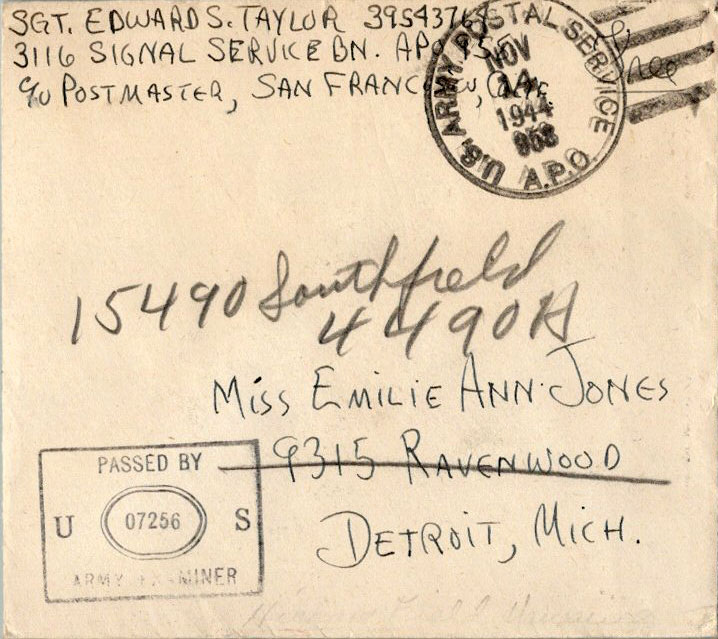 SGT. EDWARD S. TAYLOR 3954376
3116 SIGNAL SERVICE BN. APO 958
c/o POSTMASTER, SAN FRANCISCO, CALIF.
Free
U.S. ARMY POSTAL SERVICE
NOV
1944
958
A.P.O.
15490 Southfield
4490A
MISS EMILIE ANN JONES
9315 RAVENWOOD
DETROIT, MICH.
PASSED BY
U 07256 S
ARMY EXAMINER